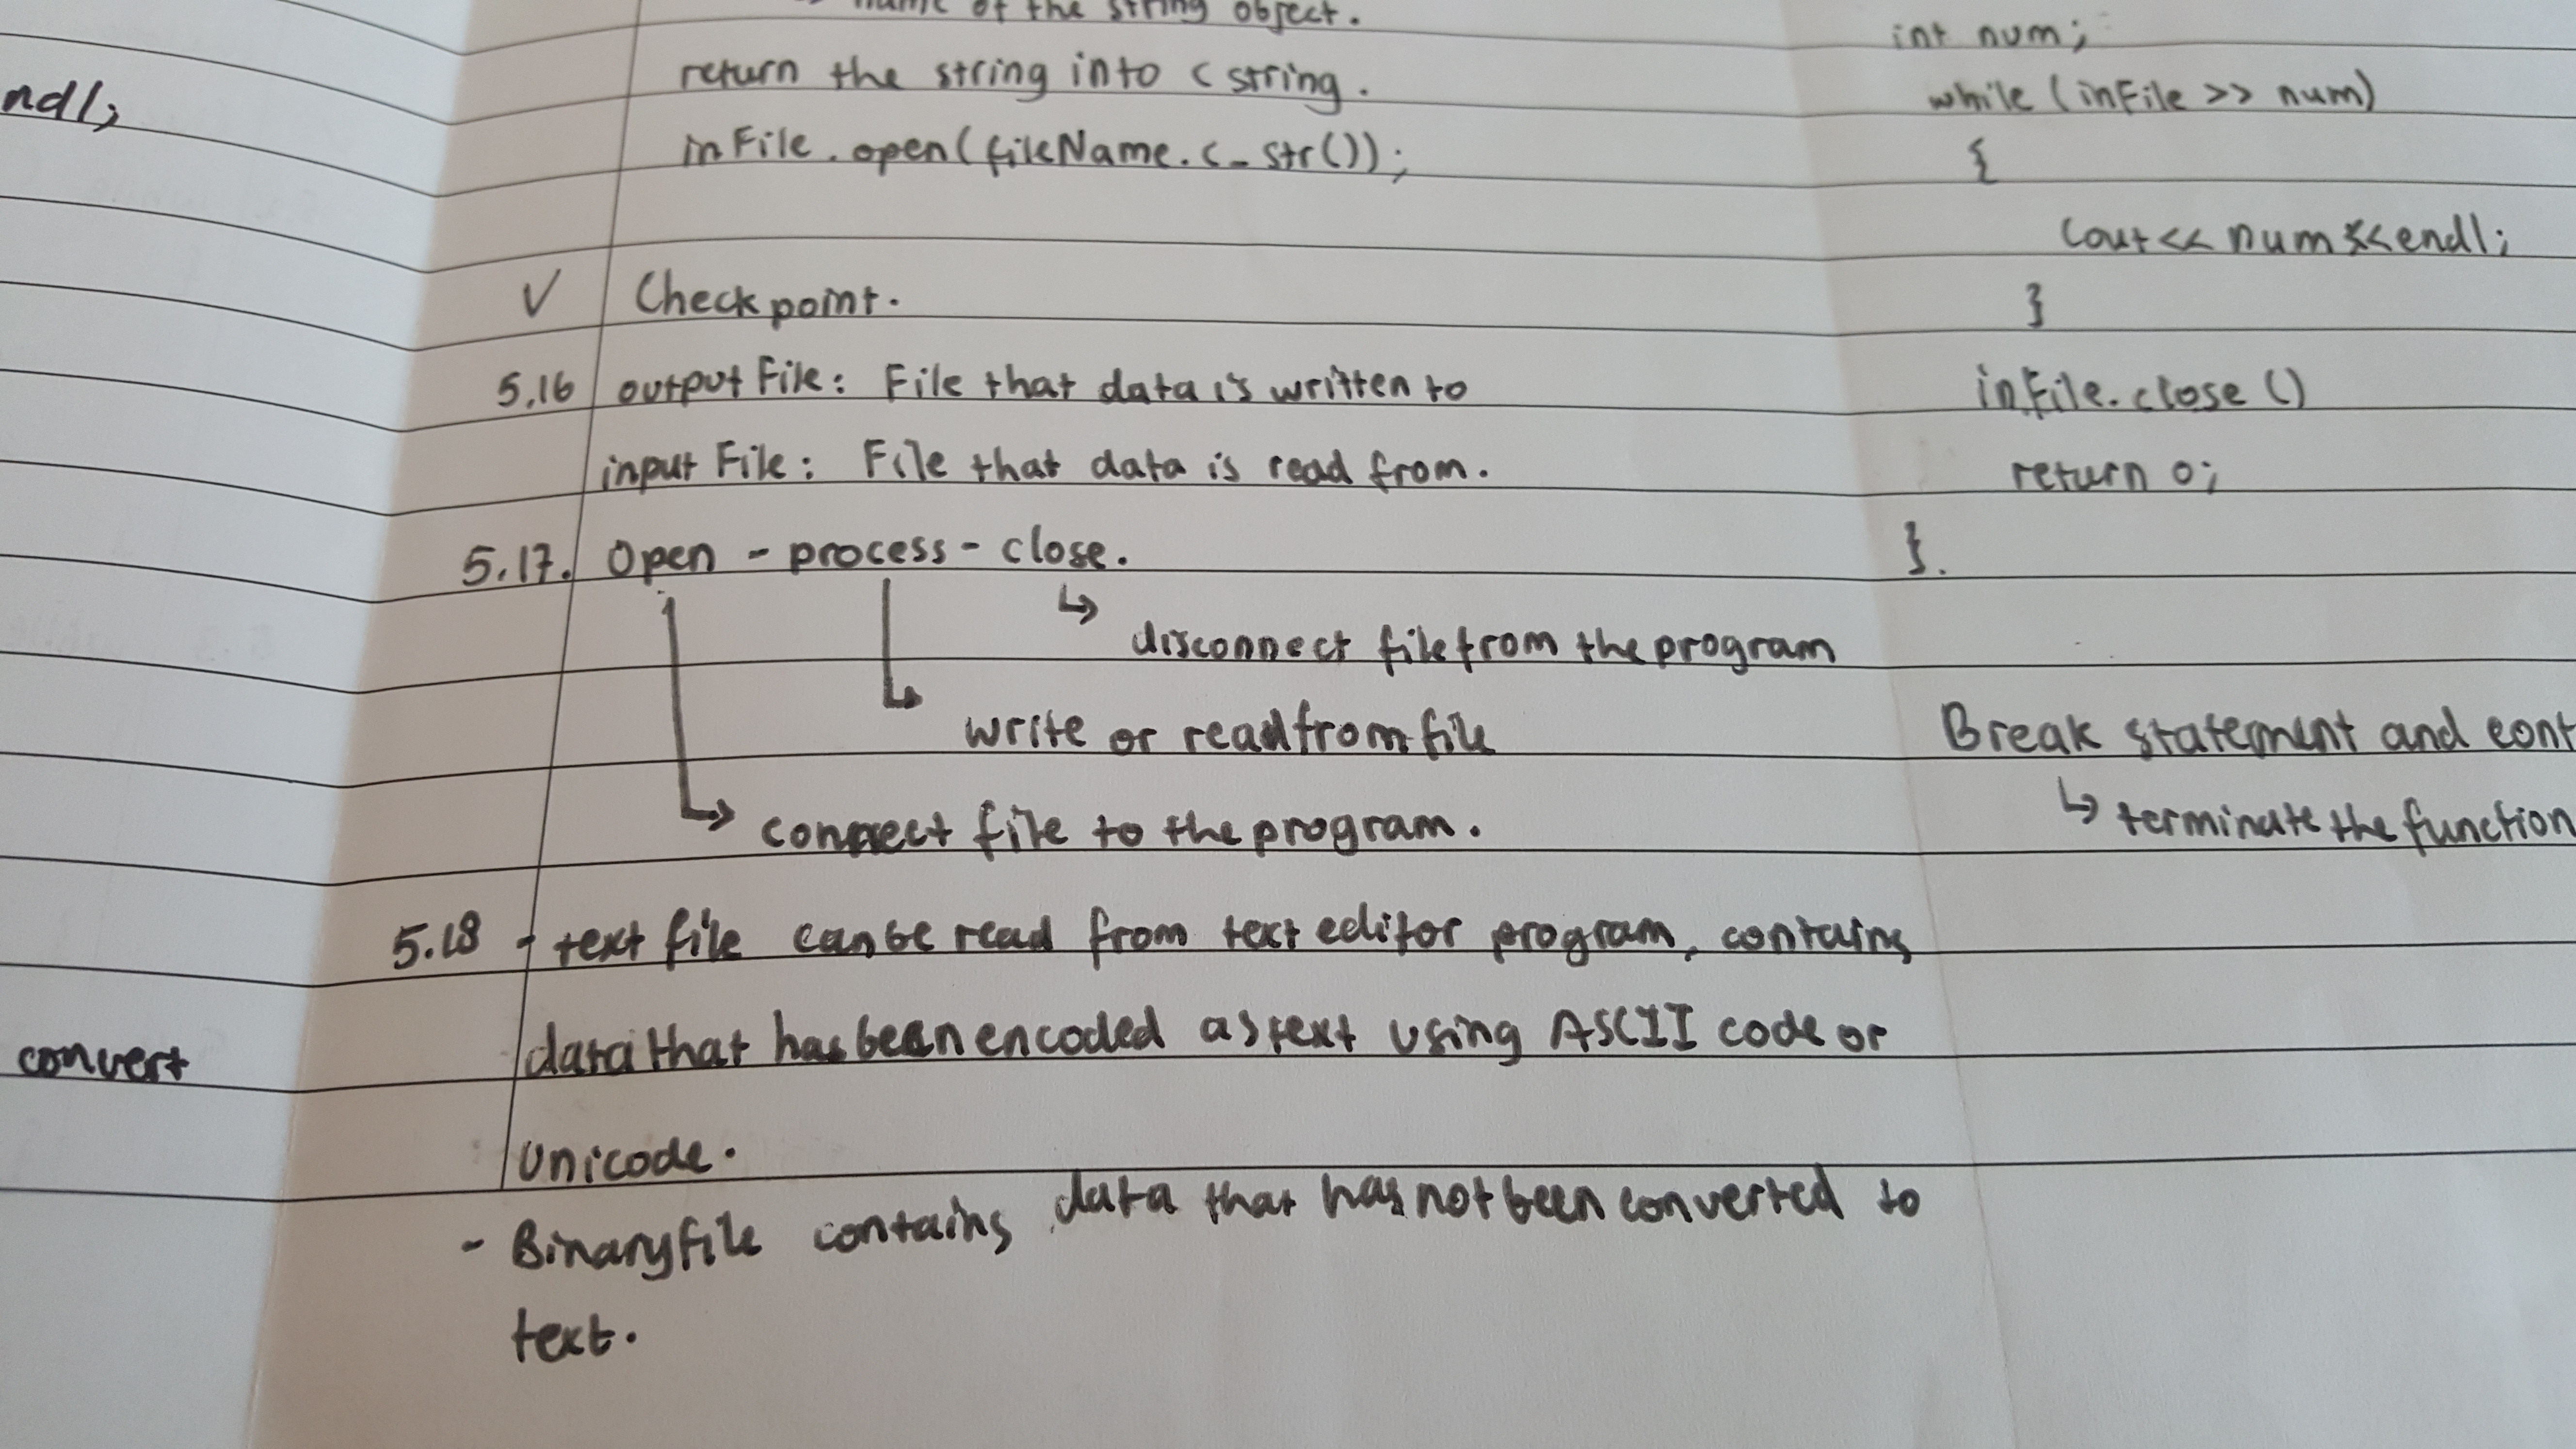 name of the string object.
return the string into c string.
inFile.open(fileName.c_str());
✓ Checkpoint.
5.16 output File: File that data is written to
input File: File that data is read from.
5.17. Open - process - close.
↳ disconnect file from the program
↳ write or read from file
↳ connect file to the program.
5.18 - text file can be read from text editor program, contains
data that has been encoded as text using ASCII code or
Unicode.
- Binary file contains data that has not been converted to
text.
ndl;
convert
int num;
while (inFile >> num)
{
cout << num << endl;
}
inFile.close ()
return 0;
}.
Break statement and cont
↳ terminate the function